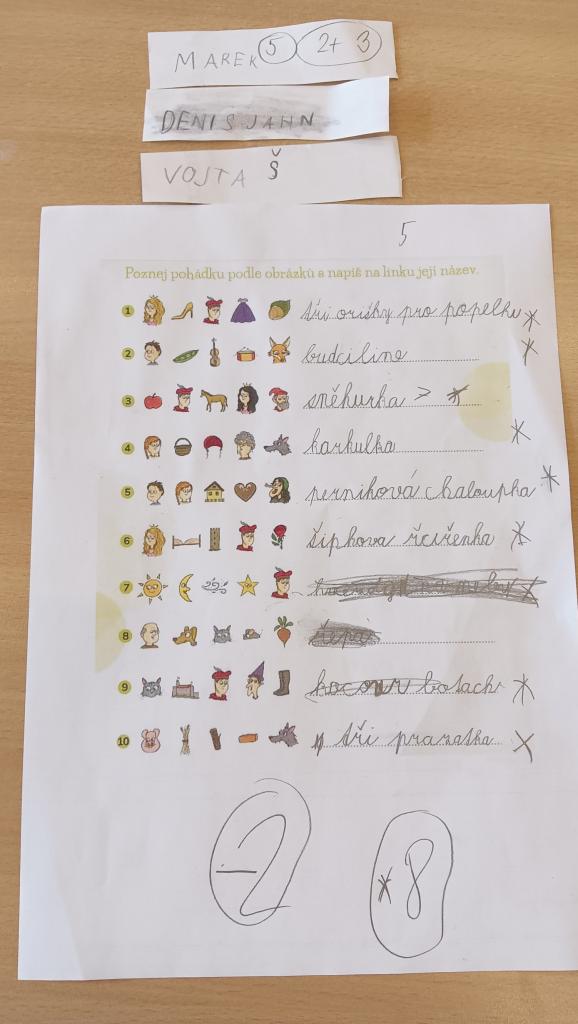 MAREK 5 2+ 3
DENIS JAHN
VOJTA Š
5
Poznej pohádku podle obrázků a napiš na linku její název.
1 tři oříšky pro popelku
2 budcilino
3 sněhurka >
4 karkulka
5 perníková chaloupka
6 šípkova
7
8 řepa
9 kocour botach
10 tři prazatka
-2
8